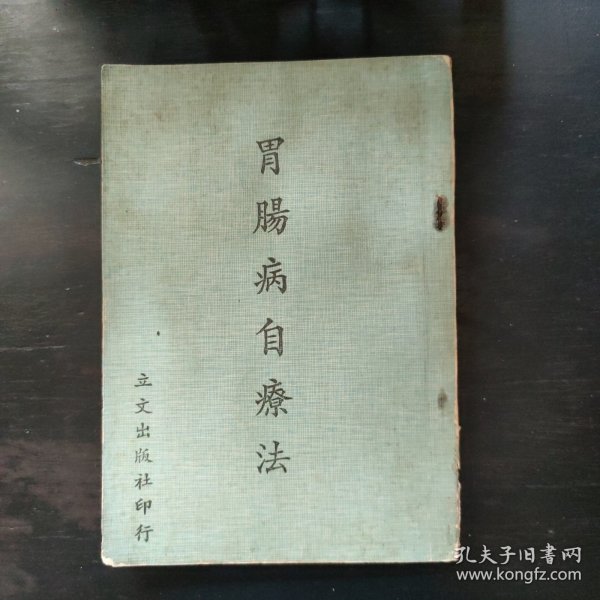 胃腸病自療法
立文出版社印行
孔夫子旧書网
www.kongfz.com